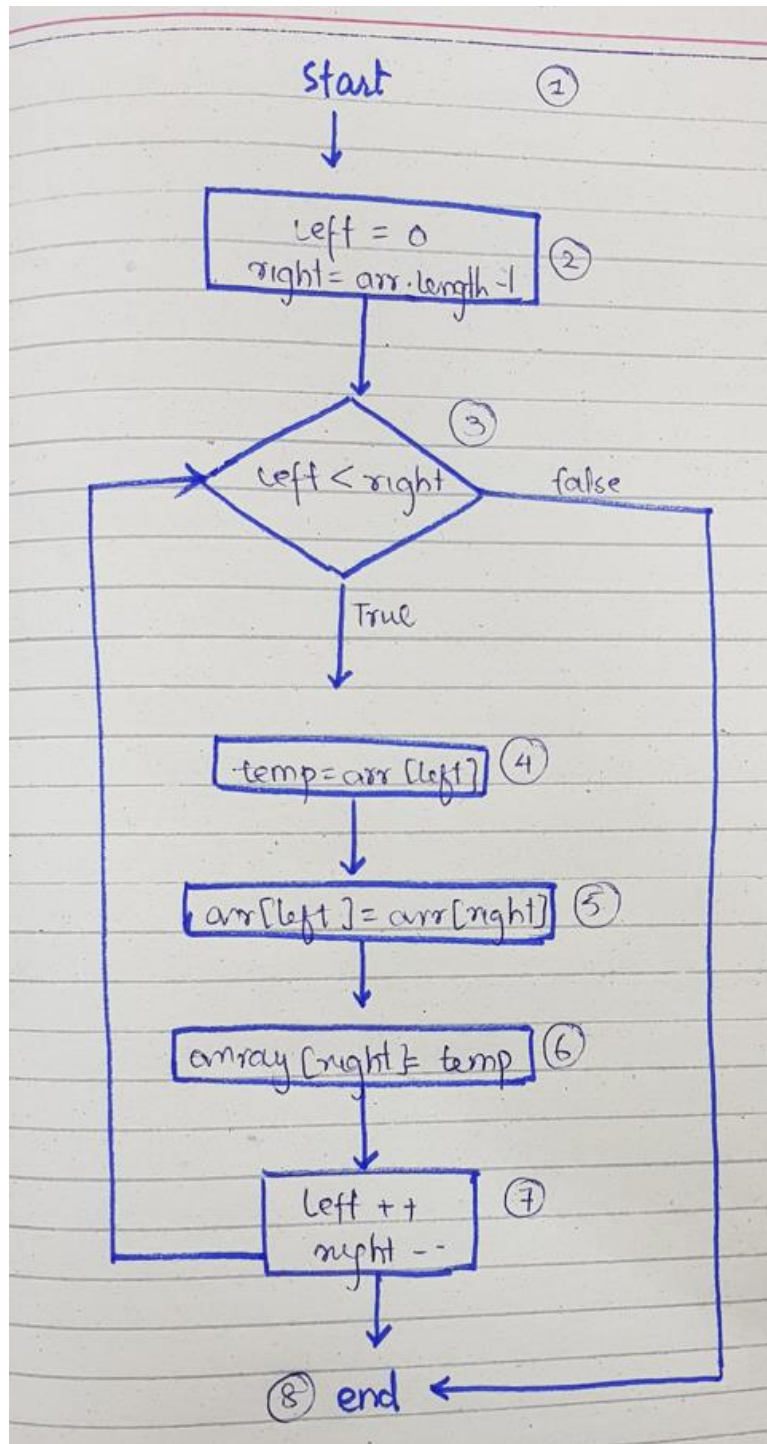 Start 1
left = 0
right = arr.length-1 2
3
left < right false
True
temp = arr [left] 4
arr[left] = arr[right] 5
array [right] = temp 6
left ++ 7
right --
8 end